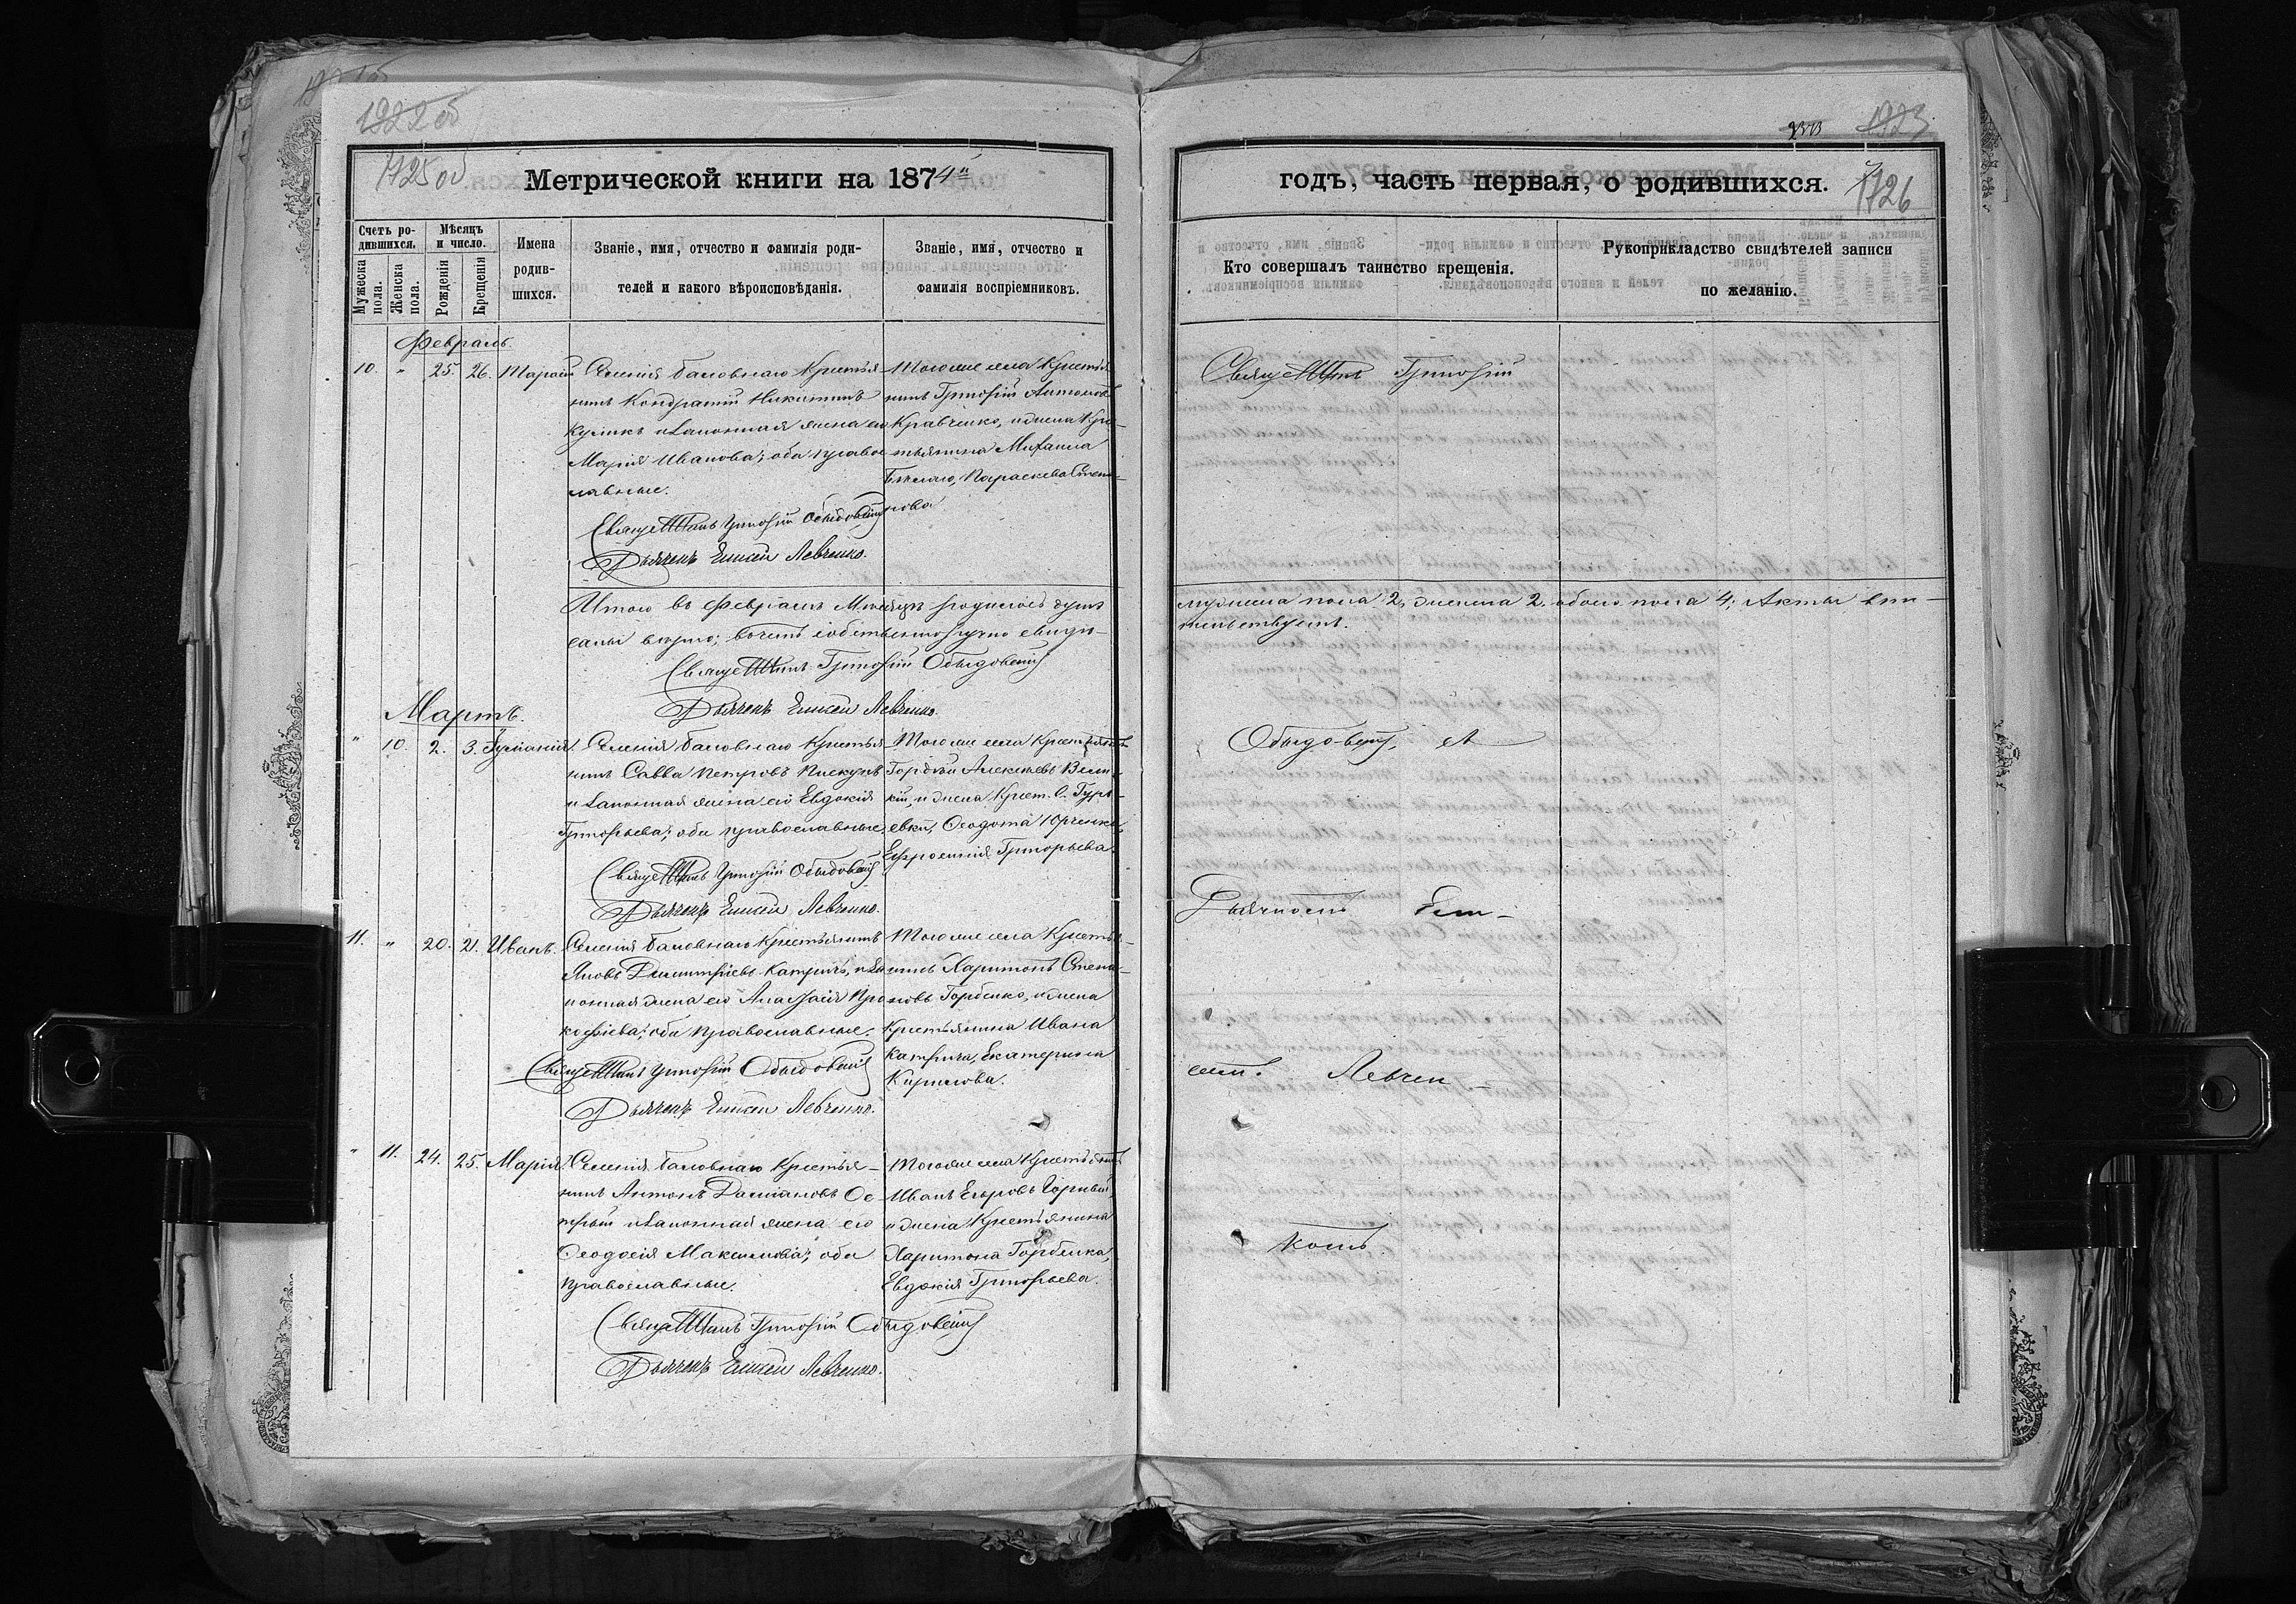 1922 об
1725 об
Метрической книги на 1874й
Счетъ ро-
дившихся.
Мѣсяцъ
и число.
Мужеска
пола.
Женска
пола.
Рожденія
Крещенія
Имена
родив-
шихся.
Званіе, имя, отчество и фамилія роди-
телей и какого вѣроисповѣданія.
Званіе, имя, отчество и
фамилія воспріемниковъ.
Февраль.
10. " 25. 26. Тарасій
Селенія Баловнаго Крестья-
нинъ Кондратій Никитинъ
Куликъ и законная жена его
Марія Иванова; оба право
славные.
Священникъ Григорій Обыдовскій
Дьячекъ Елисей Левченко.
Того же села Крестья
нинъ Григорій Антоновъ
Кравченко, и жена Кре-
стьянина Михаила
Бѣлаго, Параскева Степа-
нова
Итого въ Февралѣ Мѣсяцѣ родилось душъ
саны вѣрно; въ чемъ собственноручно свидѣ-
Священникъ Григорій Обыдовскій
Дьячекъ Елисей Левченко.
Мартъ.
" 10. 2. 3.
Селенія Баловнаго Крестья
нинъ Савва Петровъ Пискунъ
и законная жена его Евдокія
Григорьева; оба православные,
Священникъ Григорій Обыдовскій
Дьячекъ Елисей Левченко.
Того же села Крестьянинъ
Гордѣй Алексѣевъ Вели-
кій, и жена Крест. С. Гурь-
евки, Ѳеодота Юрченка,
Ефросинія Григорьева.
11. " 20. 21. Иванъ.
Селенія Баловнаго Крестьянинъ
Яковъ Димитріевъ Катричъ, и за
конная жена его Анастасія Про
кофіева; оба православные.
Священникъ Григорій Обыдовскій
Дьячекъ Елисей Левченко.
Того же села Крестья-
нинъ Харитонъ Степа-
новъ Горбенко, и жена
Крестьянина Ивана
Катрича, Екатерина
Кирилова.
" 11. 24. 25. Марія.
Селенія Баловнаго Крестья-
нинъ Антонъ Даміановъ Ос-
трый и законная жена его
Ѳеодосія Максимова; оба
православные.
Священникъ Григорій Обыдовскій
Дьячекъ Елисей Левченко.
Того же села Крестьянинъ
Иванъ Егоровъ Чорный,
и жена Крестьянина
Харитона Горбенка,
Евдокія Григорьева.
1923
годъ, часть первая, о родившихся.
1726
Кто совершалъ таинство крещенія.
Рукоприкладство свидѣтелей записи
по желанію.
Священникъ Григорій
мужеска пола 2, женска 2. обоего пола 4; Акты впи-
тельствуемъ.
Обыдовскій, съ
Дьячкомъ Ели-
сеем. Левчен-
комъ.